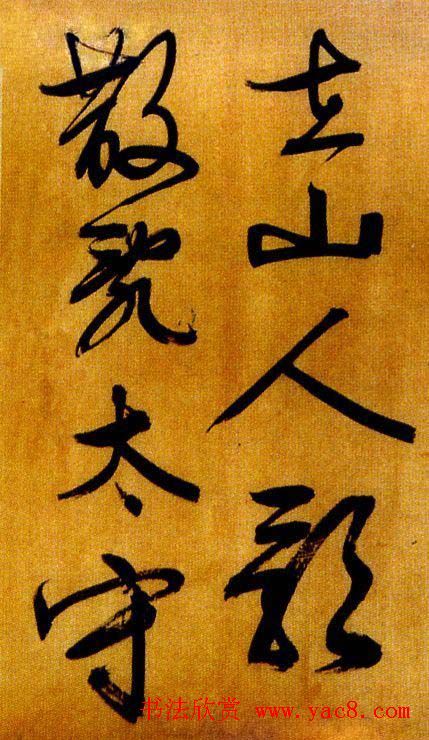 在山人影
散亂太守
书法欣赏 www.yac8.com